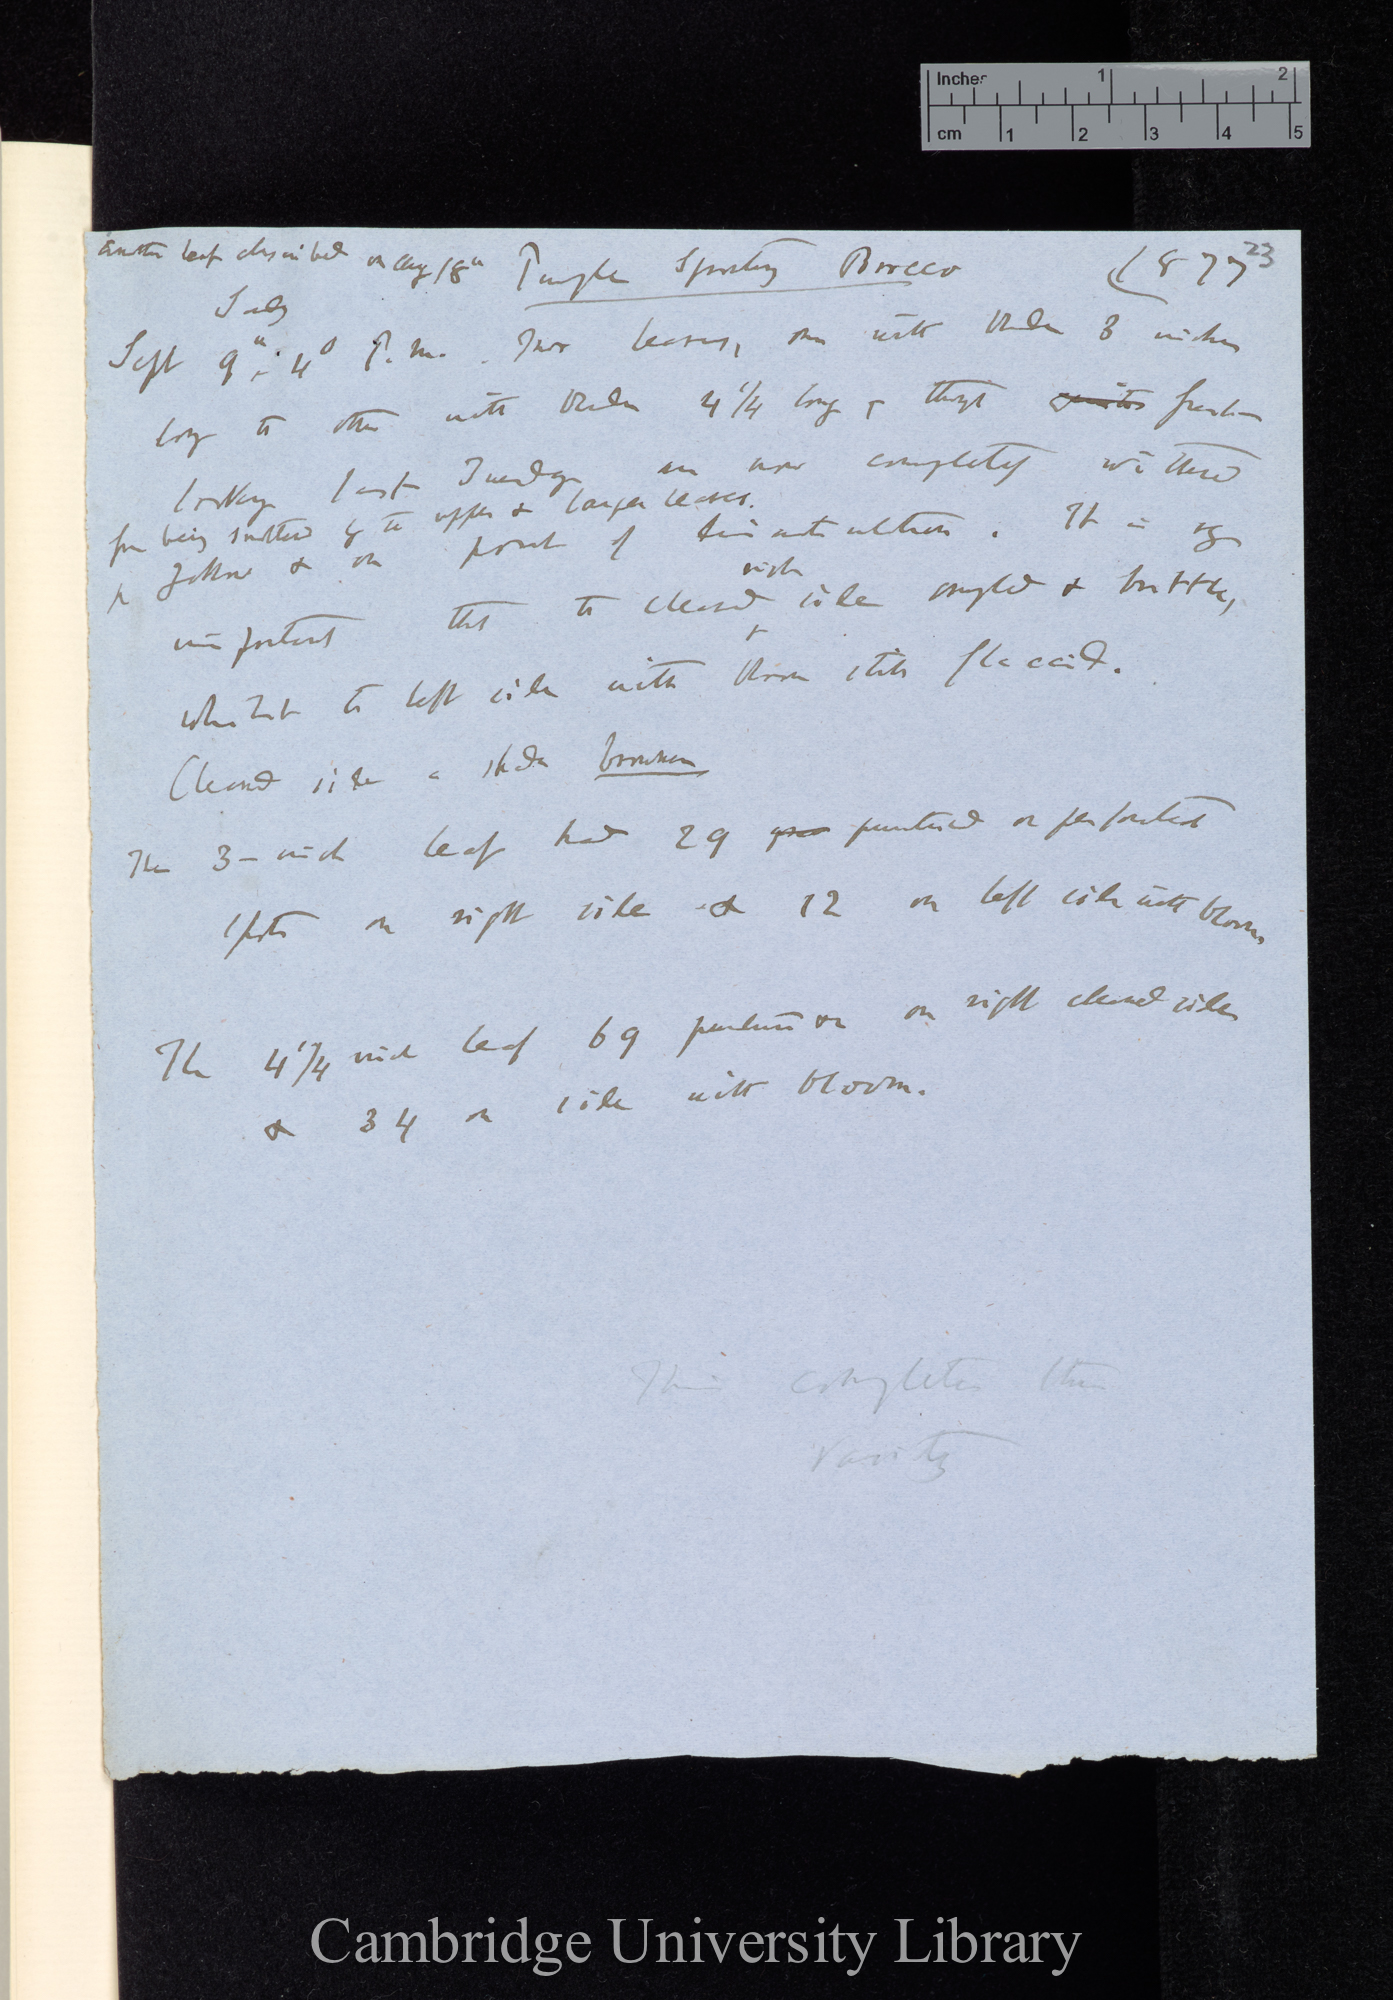 Inches 1 2
cm 1 2 3 4 5
23
another leaf described on Aug 18th Purple Sprouting Brocco (1877
Sunday
Sept 9th, 4° P.m. Two leaves, one with blade 3 inches
long the other with blade 4 1/4 long, though quite fresh
looking last Tuesday are now completely withered
from being smothered by the upper & larger leaves.
yellow & on point of disarticulation. It is
important that the cleaned right side & brittle,
whilst the left side with bloom still flaccid.
Cleaned side a shade browner
The 3-inch leaf had 29 punctured or perforated
spots on right side & 12 on left side with bloom,
The 4 1/4 inch leaf 69 punctures on right cleaned side
& 34 on side with bloom.
This completes this
variety
Cambridge University Library